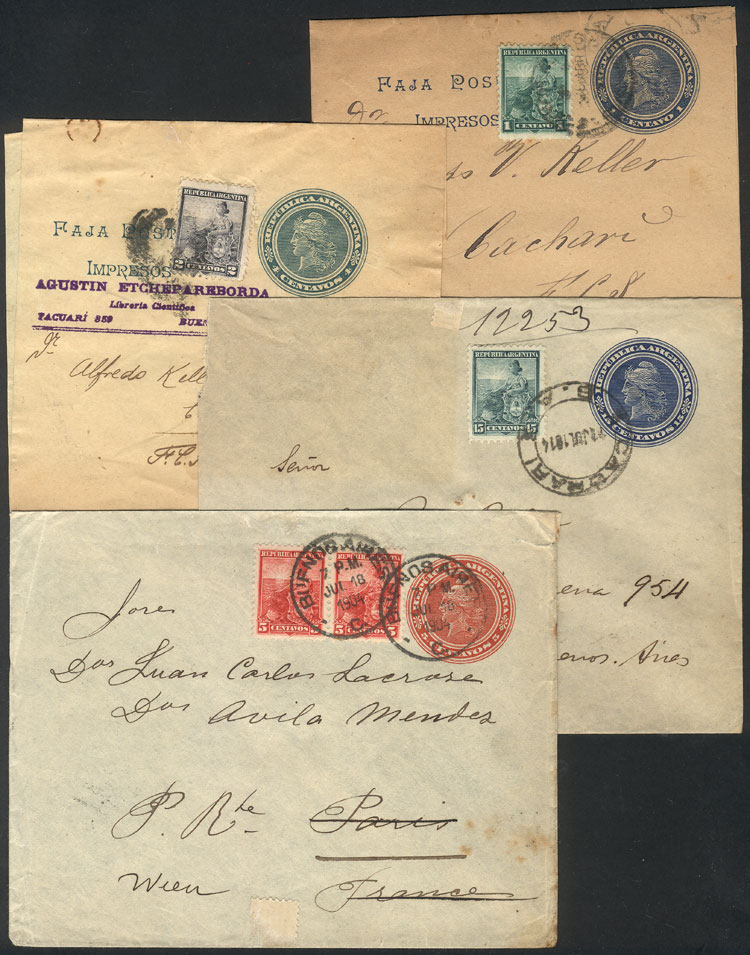 FAJA POS
IMPRESOS
REPÚBLICA ARGENTINA
1 CENTAVO
REPÚBLICA ARGENTINA
1 CENTAVO 1
V. Keller
Cachari
F.C.S.
FAJA POST
IMPRESOS
REPÚBLICA ARGENTINA
2 CENTAVOS 2
REPÚBLICA ARGENTINA
4 CENTAVOS 4
AGUSTIN ETCHEPAREBORDA
Librería Científica
TACUARÍ 859 BUEN
Dr
Alfredo Kell
F.C.
12253
REPUBLICA ARGENTINA
15 CENTAVOS 15
REPÚBLICA ARGENTINA
15 CENTAVOS 15
CACHARI
JUL 1914
Señor
954
enos. Aires
REPUBLICA ARGENTINA
5 CENTAVOS 5
5 CENTAVOS 5
BUENOS AIRES
7 P.M.
JUL 18
1904
C.
BUENOS AIRES
P.M.
JUL 18
1904
5 CENTAVOS 5
Sores
Dos Juan Carlos Lacroze
Dos Avila Mendez
P. Rte Paris
Wien France